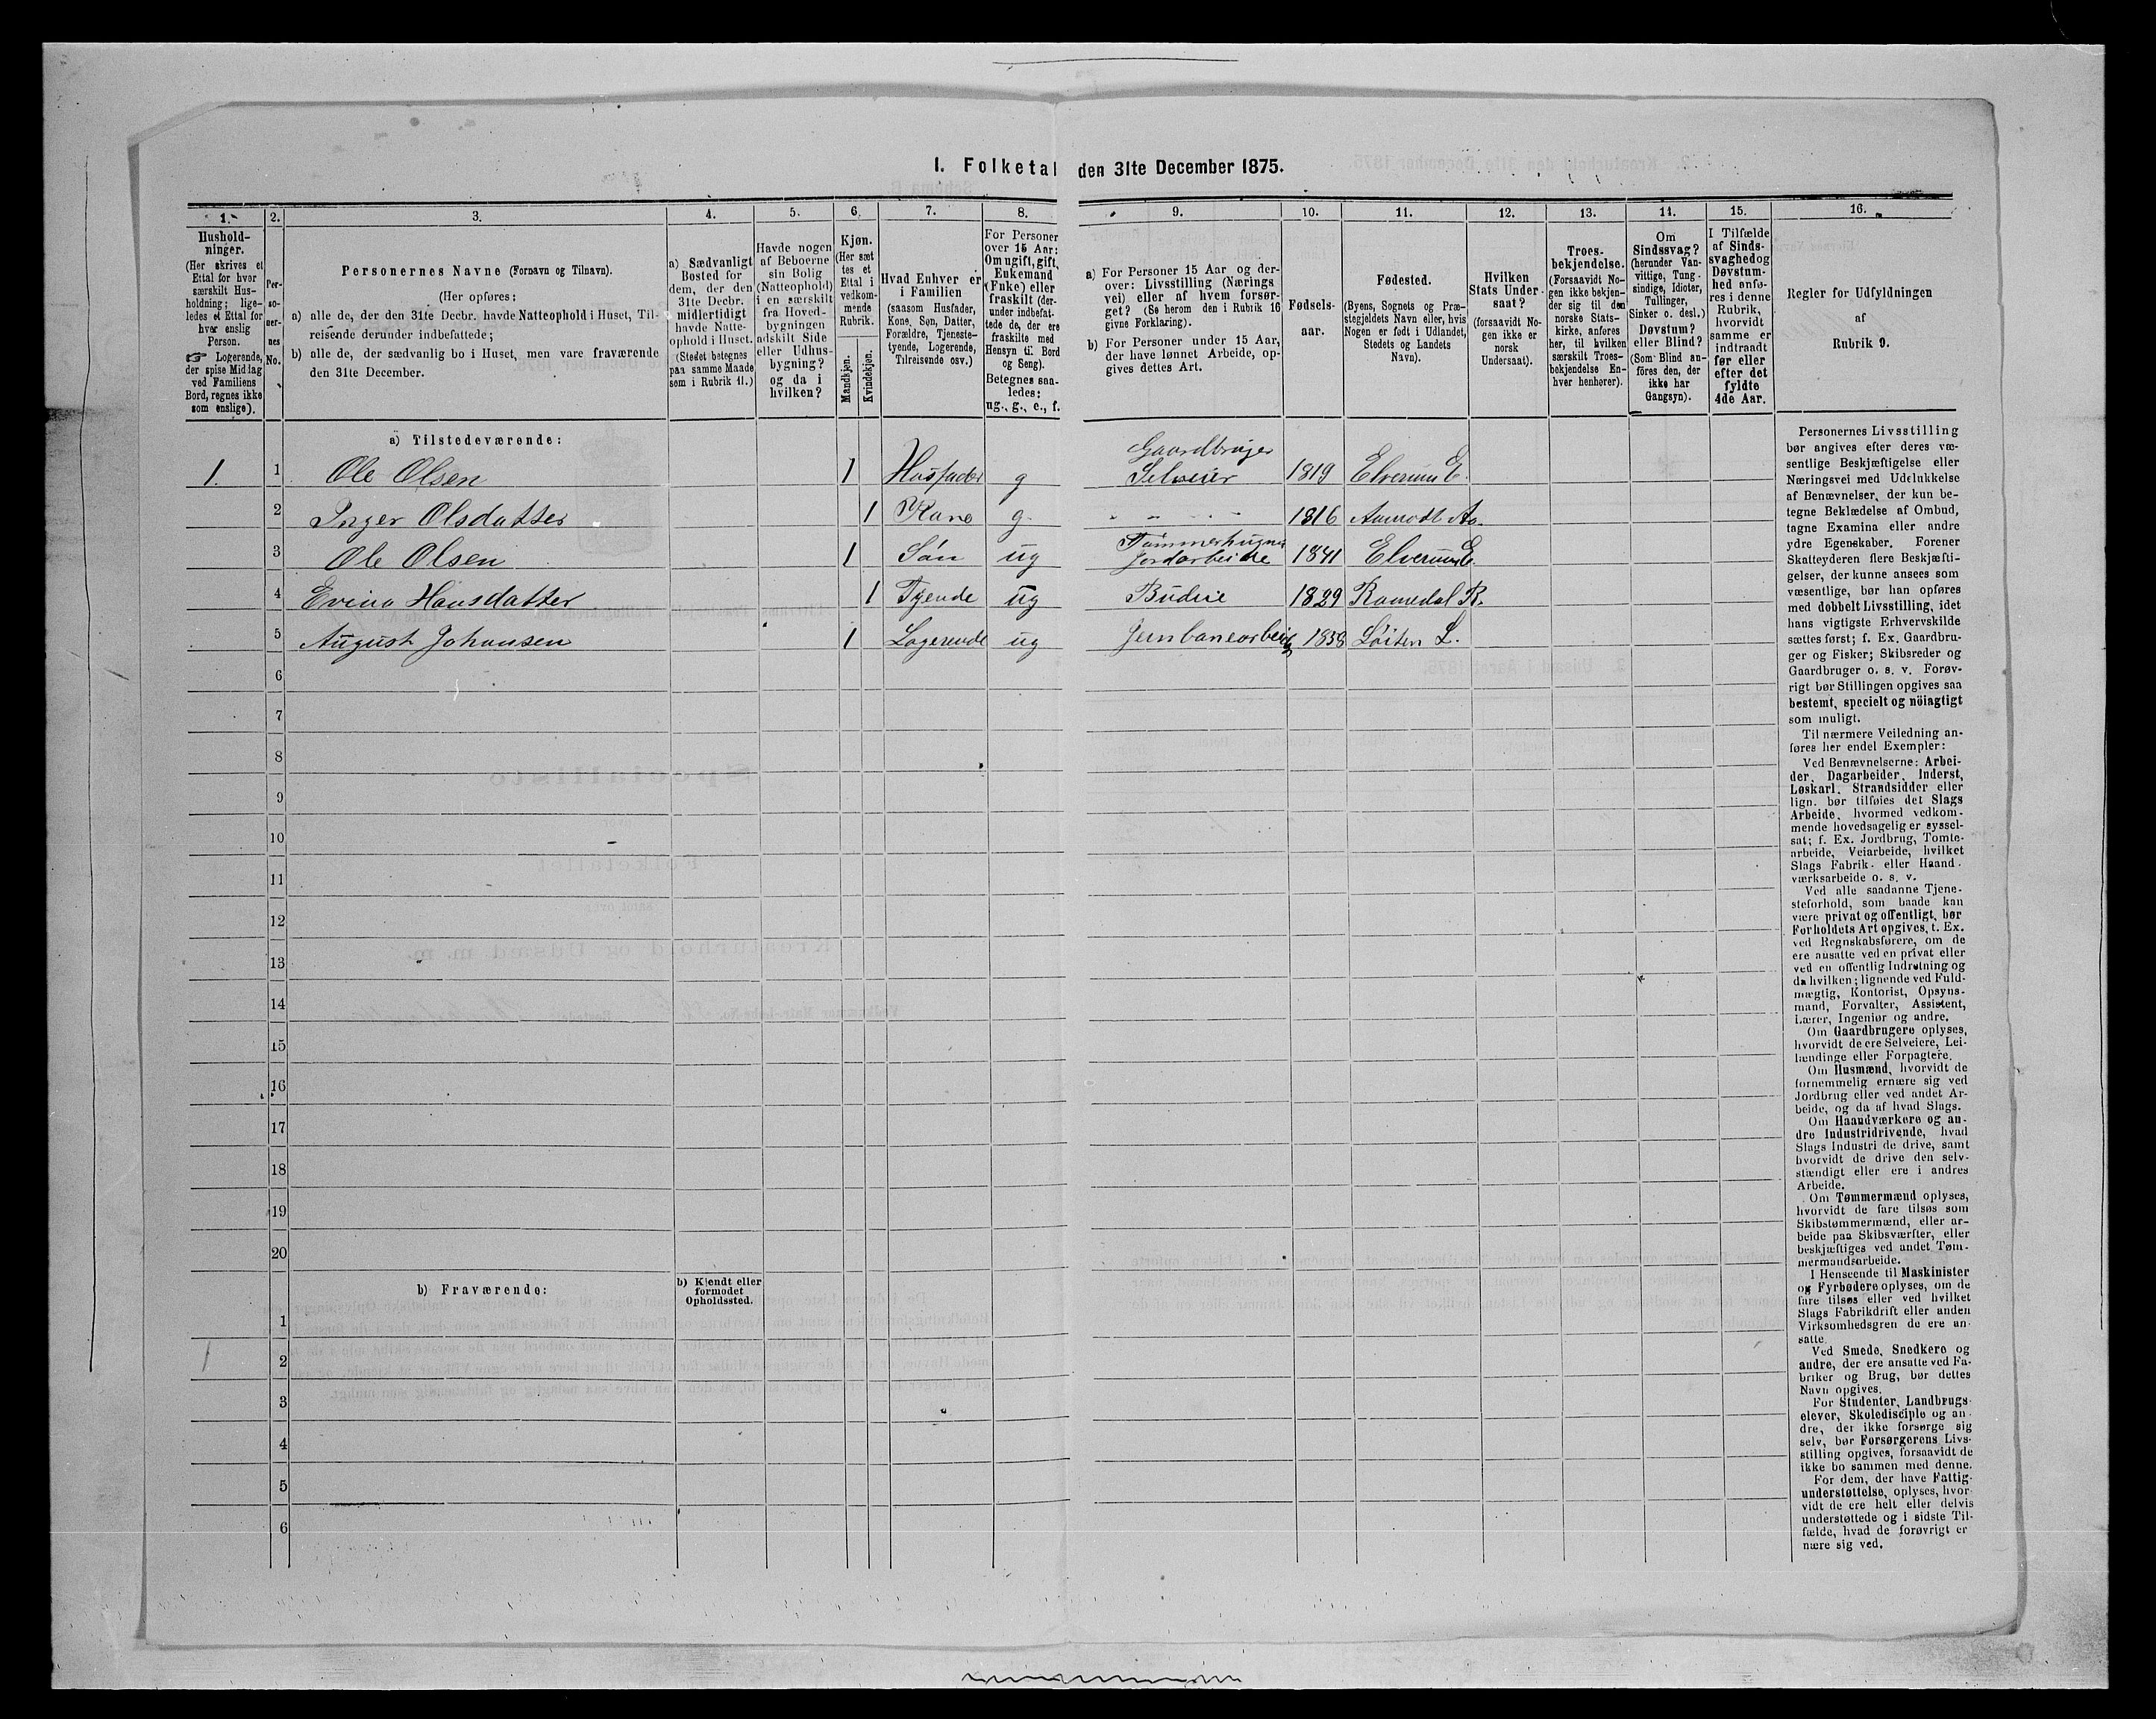 1. Folketal den 31te December 1875.
1. 2. 3. 4. 5. 6. 7. 8. 9. 10. 11. 12. 13. 14. 15. 16.
Hushold-
ninger.
(Her skrives et
Ettal for hver
særskilt Hus-
holdning; lige-
ledes et Ettal for
hver enslig
Person.
☞ Logerende,
der spise Middag
ved Familiens
Bord, regnes ikke
som enslige).
Per-
so-
ner-
nes
No.
Personernes Navne (Fornavn og Tilnavn).
(Her opføres:
a) alle de, der den 31te Decbr. havde Natteophold i Huset, Til-
reisende derunder indbefattede;
b) alle de, der sædvanlig bo i Huset, men vare fraværende
den 31te December.
a) Sædvanligt
Bosted for
dem, der den
31te Decbr.
midlertidigt
havde Natte-
ophold i Huset.
(Stedet betegnes
paa samme Maade
som i Rubrik 11.)
Havde nogen
af Beboerne
sin Bolig
(Natteophold)
i en særskilt
fra Hoved-
bygningen
adskilt Side
eller Udhus-
bygning?
og da i
hvilken?
Kjøn.
(Her sæt
tes et
Ettal i
vedkom-
mende
Rubrik.
Mandkjøn.
Kvindekjøn.
Hvad Enhver er
i Familien
(saasom Husfader,
Kone, Søn, Datter,
Forældre, Tjeneste-
tyende, Logerende,
Tilreisende osv.)
For Personer
over 15 Aar:
Om ugift, gift,
Enkemand
(Enke) eller
fraskilt (der-
under indbefat-
tede de, der ere
fraskilte med
Hensyn til Bord
og Seng).
Betegnes saa-
ledes:
ug., g., e., f.
a) For Personer 15 Aar og der-
over: Livsstilling (Nærings
vei) eller af hvem forsør-
get? (Se herom den i Rubrik 16
givne Forklaring).
b) For Personer under 15 Aar,
der have lønnet Arbeide, op-
gives dettes Art.
Fødsels-
aar.
Fødested.
(Byens, Sognets og Præ-
stegjeldets Navn eller, hvis
Nogen er født i Udlandet,
Stedets og Landets
Navn).
Hvilken
Stats Under
saat?
(forsaavidt No-
gen ikke er
norsk
Undersaat).
Troes-
bekjendelse.
(Forsaavidt No-
gen ikke bekjen-
der sig til den
norske Stats-
kirke, anføres
her, til hvilken
særskilt Troes-
bekjendelse En-
hver henhører).
Om
Sindssvag?
(herunder Van-
vittige, Tung-
sindige, Idioter,
Tullinger,
Sinker o. desl.)
Døvstum?
eller Blind?
(Som Blind an-
föres den, der
ikke har
Gangsyn).
I Tilfælde
af Sinds-
svaghedog
Døvstum-
hed anfø-
res i denne
Rubrik,
hvorvidt
samme er
indtraadt
før eller
efter det
fyldte
4de Aar.
Regler for Udfyldningen
af
Rubrik 9.
a) Tilstedeværende:
1. 1 Ole Olsen 1 Husfader g Gaardbruger Selveier 1819 Elverum E.
2 Inger Olsdatter 1 Kone g. " " " " 1816 Aamodt Aa.
3 Ole Olsen 1 Søn ug Tømmerhugner Jordarbeide 1841 Elverum E.
4 Evina Hansdatter 1 Tyende ug Budeie 1829 Romedal R.
5 August Johansen 1 Logerende ug Jernbanearbeid 1858 Løiten L.
6
7
8
9
10
11
12
13
14
15
16
17
18
19
20
b) Fraværende:
b) Kjendt eller
formodet
Opholdssted.
1
1 2
3
4
5
6
Personernes Livsstilling
bør angives efter deres væ-
sentlige Beskjæftigelse eller
Næringsvei med Udelukkelse
af Benævnelser, der kun be-
tegne Beklædelse af Ombud,
tagne Examina eller andre
ydre Egenskaber. Forener
Skatteyderen flere Beskjæfti-
gelser, der kunne ansees som
væsentlige, bør han opføres
med dobbelt Livsstilling, idet
hans vigtigste Erhvervskilde
sættes først; f. Ex. Gaardbru-
ger og Fisker; Skibsreder og
Gaardbruger o. s. v. Forøv-
rigt bør Stillingen opgives saa
bestemt, specielt og nöiagtigt
som muligt.
Til nærmere Veiledning an-
føres her endel Exempler:
Ved Benævnelserne: Arbei-
der, Dagarbeider, Inderst,
Løskarl, Strandsidder eller
lign. bør tilføies det Slags
Arbeide, hvormed vedkom-
mende hovedsagelig er syssel-
sat; f. Ex. Jordbrug, Tomte-
arbeide, Veiarbeide, hvilket
Slags Fabrik- eller Haand-
værksarbeide o. s. v.
Ved alle saadanne Tjene-
steforhold, som baade kan
være privat og offentligt, bør
Forholdets Art opgives, t. Ex.
ved Regnskabsførere, om de
ere ansatte ved en privat eller
ved en offentlig Indretning og
da hvilken; lignende ved Fuld-
mægtig, Kontorist, Opsyns-
mand, Forvalter, Assistent,
Lærer, Ingeniør og andre.
Om Gaardbrugere oplyses,
hvorvidt de ere Selveiere, Lei-
lændinge eller Forpagtere.
Om Husmænd, hvorvidt de
fornemmelig ernære sig ved
Jordbrug eller ved andet Ar-
beide, og da af hvad Slags.
Om Haandværkere og an-
dre Industridrivende, hvad
Slags Industri de drive, samt
hvorvidt de drive den selv-
stændigt eller ere i andres
Arbeide.
Om Tømmermænd oplyses,
hvorvidt de fare tilsøs som
Skibstømmermænd, eller ar-
beide paa Skibsværfter, eller
beskjæftiges ved andet Tøm-
mermandsarbeide.
I Henseende til Maskinister
og Fyrbødere oplyses, om de
fare tilsøs eller ved hvilket
Slags Fabrikdrift eller anden
Virksomhedsgren de ere an-
satte.
Ved Smede, Snedkere og
andre, der ere ansatte ved Fa-
briker og Brug, bør dettes
Navn opgives.
For Studenter, Landbrugs-
elever, Skoledisciple og an-
dre, der ikke forsørge sig
selv, bør Forsørgerens Livs-
stilling opgives, forsaavidt de
ikke bo sammen med denne.
For dem, der have Fattig-
understøttelse, oplyses, hvor-
vidt de ere helt eller delvis
understøttede og i sidste Til-
fælde, hvad de forøvrigt er
nære sig ved.